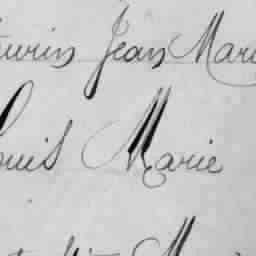 turin Jean Mari
ouis Marie